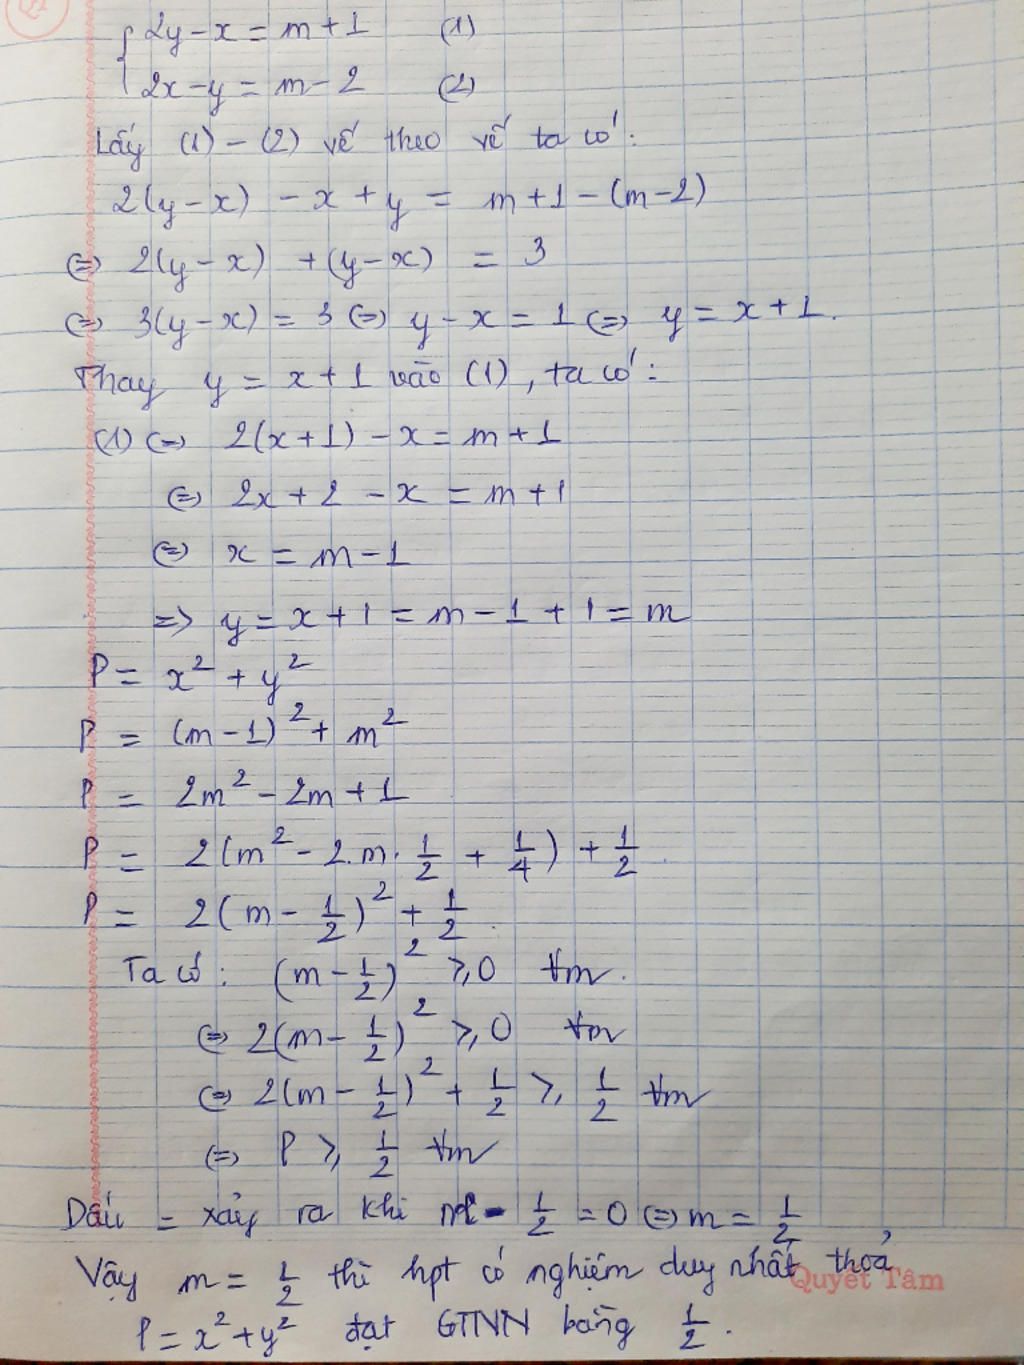 2y - x = m + 1 (1)
2x - y = m - 2 (2)
Lấy (1) - (2) vế theo vế ta có:
2(y - x) - x + y = m + 1 - (m - 2)
⇔ 2(y - x) + (y - x) = 3
⇔ 3(y - x) = 3 ⇔ y - x = 1 ⇔ y = x + 1.
Thay y = x + 1 vào (1), ta có:
(1) ⇔ 2(x + 1) - x = m + 1
⇔ 2x + 2 - x = m + 1
⇔ x = m - 1
⇒ y = x + 1 = m - 1 + 1 = m
P = x² + y²
P = (m - 1)² + m²
P = 2m² - 2m + 1
P = 2(m² - 2.m.1/2 + 1/4) + 1/2.
P = 2(m - 1/2)² + 1/2.
Ta có: (m - 1/2)² ≥ 0 ∀m.
⇔ 2(m - 1/2)² ≥ 0 ∀m
⇔ 2(m - 1/2)² + 1/2 ≥ 1/2 ∀m
⇔ P ≥ 1/2 ∀m
Dấu = xảy ra khi m - 1/2 = 0 ⇔ m = 1/2
Vậy m = 1/2 thì hpt có nghiệm duy nhất thoả
Quyết Tâm
P = x² + y² đạt GTNN bằng 1/2.